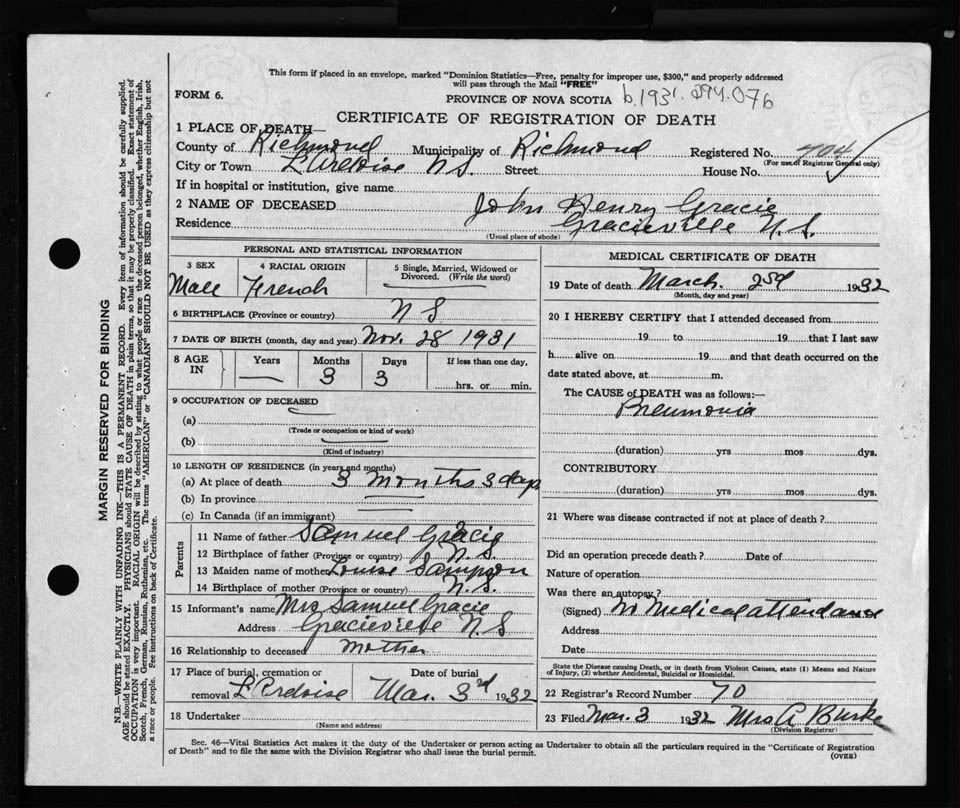 This form if placed in an envelope, marked "Dominion Statistics—Free, penalty for improper use, $300," and properly addressed
will pass through the Mail "FREE"
FORM 6.
PROVINCE OF NOVA SCOTIA b.1931.294.076
CERTIFICATE OF REGISTRATION OF DEATH
1 PLACE OF DEATH—
County of Richmond Municipality of Richmond Registered No. 404
(For use of Registrar General only)
City or Town L'Ardoise N S. Street House No.
If in hospital or institution, give name
2 NAME OF DECEASED John Henry Gracie
Residence Gracieville N.S.
(Usual place of abode)
PERSONAL AND STATISTICAL INFORMATION
3 SEX 4 RACIAL ORIGIN 5 Single, Married, Widowed or
Divorced. (Write the word)
Male French
6 BIRTHPLACE (Province or country) N S
7 DATE OF BIRTH (month, day and year) Nov. 28 1931
8 AGE IN Years Months Days If less than one day,
— 3 3 hrs. or min.
9 OCCUPATION OF DECEASED
(a)
(Trade or occupation or kind of work)
(b)
(Kind of industry)
10 LENGTH OF RESIDENCE (in years and months)
(a) At place of death 3 months 3 days
(b) In province
(c) In Canada (if an immigrant)
Parents
11 Name of father Samuel Gracie
12 Birthplace of father (Province or country) N.S.
13 Maiden name of mother Louise Sampson
14 Birthplace of mother (Province or country) N.S.
15 Informant's name Mrs Samuel Gracie
Address Gracieville N S
16 Relationship to deceased mother
17 Place of burial, cremation or
removal L'Ardoise
Date of burial
Mar. 3rd 1932
18 Undertaker
(Name and address)
MEDICAL CERTIFICATE OF DEATH
19 Date of death March 2nd 1932
(Month, day and year)
20 I HEREBY CERTIFY that I attended deceased from
19 to 19 that I last saw
h alive on 19 and that death occurred on the
date stated above, at m.
The CAUSE of DEATH was as follows:—
Pneumonia
(duration) yrs mos dys.
CONTRIBUTORY
(duration) yrs mos dys.
21 Where was disease contracted if not at place of death?
Did an operation precede death? Date of
Nature of operation
Was there an autopsy?
(Signed) No Medical attendance
Address
Date
State the Disease causing Death, or in death from Violent Causes, state (1) Means and Nature
of Injury, (2) whether Accidental, Suicidal or Homicidal.
22 Registrar's Record Number 70
23 Filed Mar. 3 1932 Mrs A Burke
(Division Registrar)
Sec. 46—Vital Statistics Act makes it the duty of the Undertaker or person acting as Undertaker to obtain all the particulars required in the "Certificate of Registration
of Death" and to file the same with the Division Registrar who shall issue the burial permit. (OVER)
MARGIN RESERVED FOR BINDING
N.B.—WRITE PLAINLY WITH UNFADING INK—THIS IS A PERMANENT RECORD. Every item of information should be carefully supplied.
AGE should be stated EXACTLY. PHYSICIANS should STATE CAUSE OF DEATH in plain terms, so that it may be properly classified. Exact statement of
OCCUPATION is very important. RACIAL ORIGIN will be described by stating to what people or race the deceased person belonged, whether English, Irish,
Scotch, French, German, Russian, Ruthenian, etc. The terms "AMERICAN" or "CANADIAN" SHOULD NOT BE USED as they express citizenship but not
a race or people. See instructions on back of Certificate.